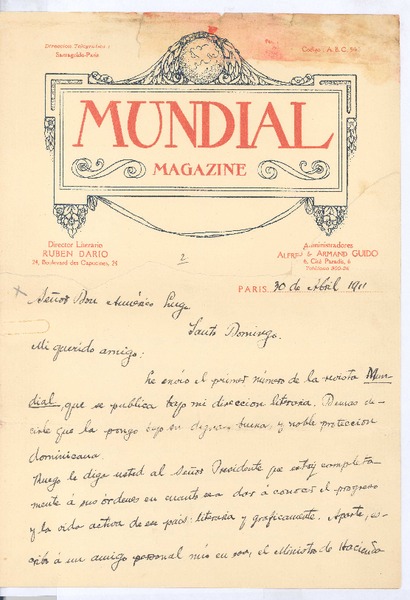 Direccion Telegrafica :
Santaguido-Paris
Codigo : A. B. C. 5
MUNDIAL
MAGAZINE
Director Literario
RUBEN DARIO
24, Boulevard des Capucines, 24
Administradores
ALFRED & ARMAND GUIDO
6, Cité Paradis, 6
Teléfono
2
PARIS 30 de Abril 1911
Señor Don Américo Lugo
Santo Domingo.
Mi querido amigo:
Le envío el primer número de la revista Mun-
dial, que se publica bajo mi direccion literaria. Demas de-
cirle que la pongo bajo su buena y noble proteccion
dominicana.
Ruego le diga usted al Señor Presidente que estoy completa
mente á sus órdenes en cuanto sea dar á conocer el progreso
y la vida activa de ese pais: literaria y graficamente. Aparte, es-
cribí á un amigo personal mio en esa, el Ministro de Hacienda